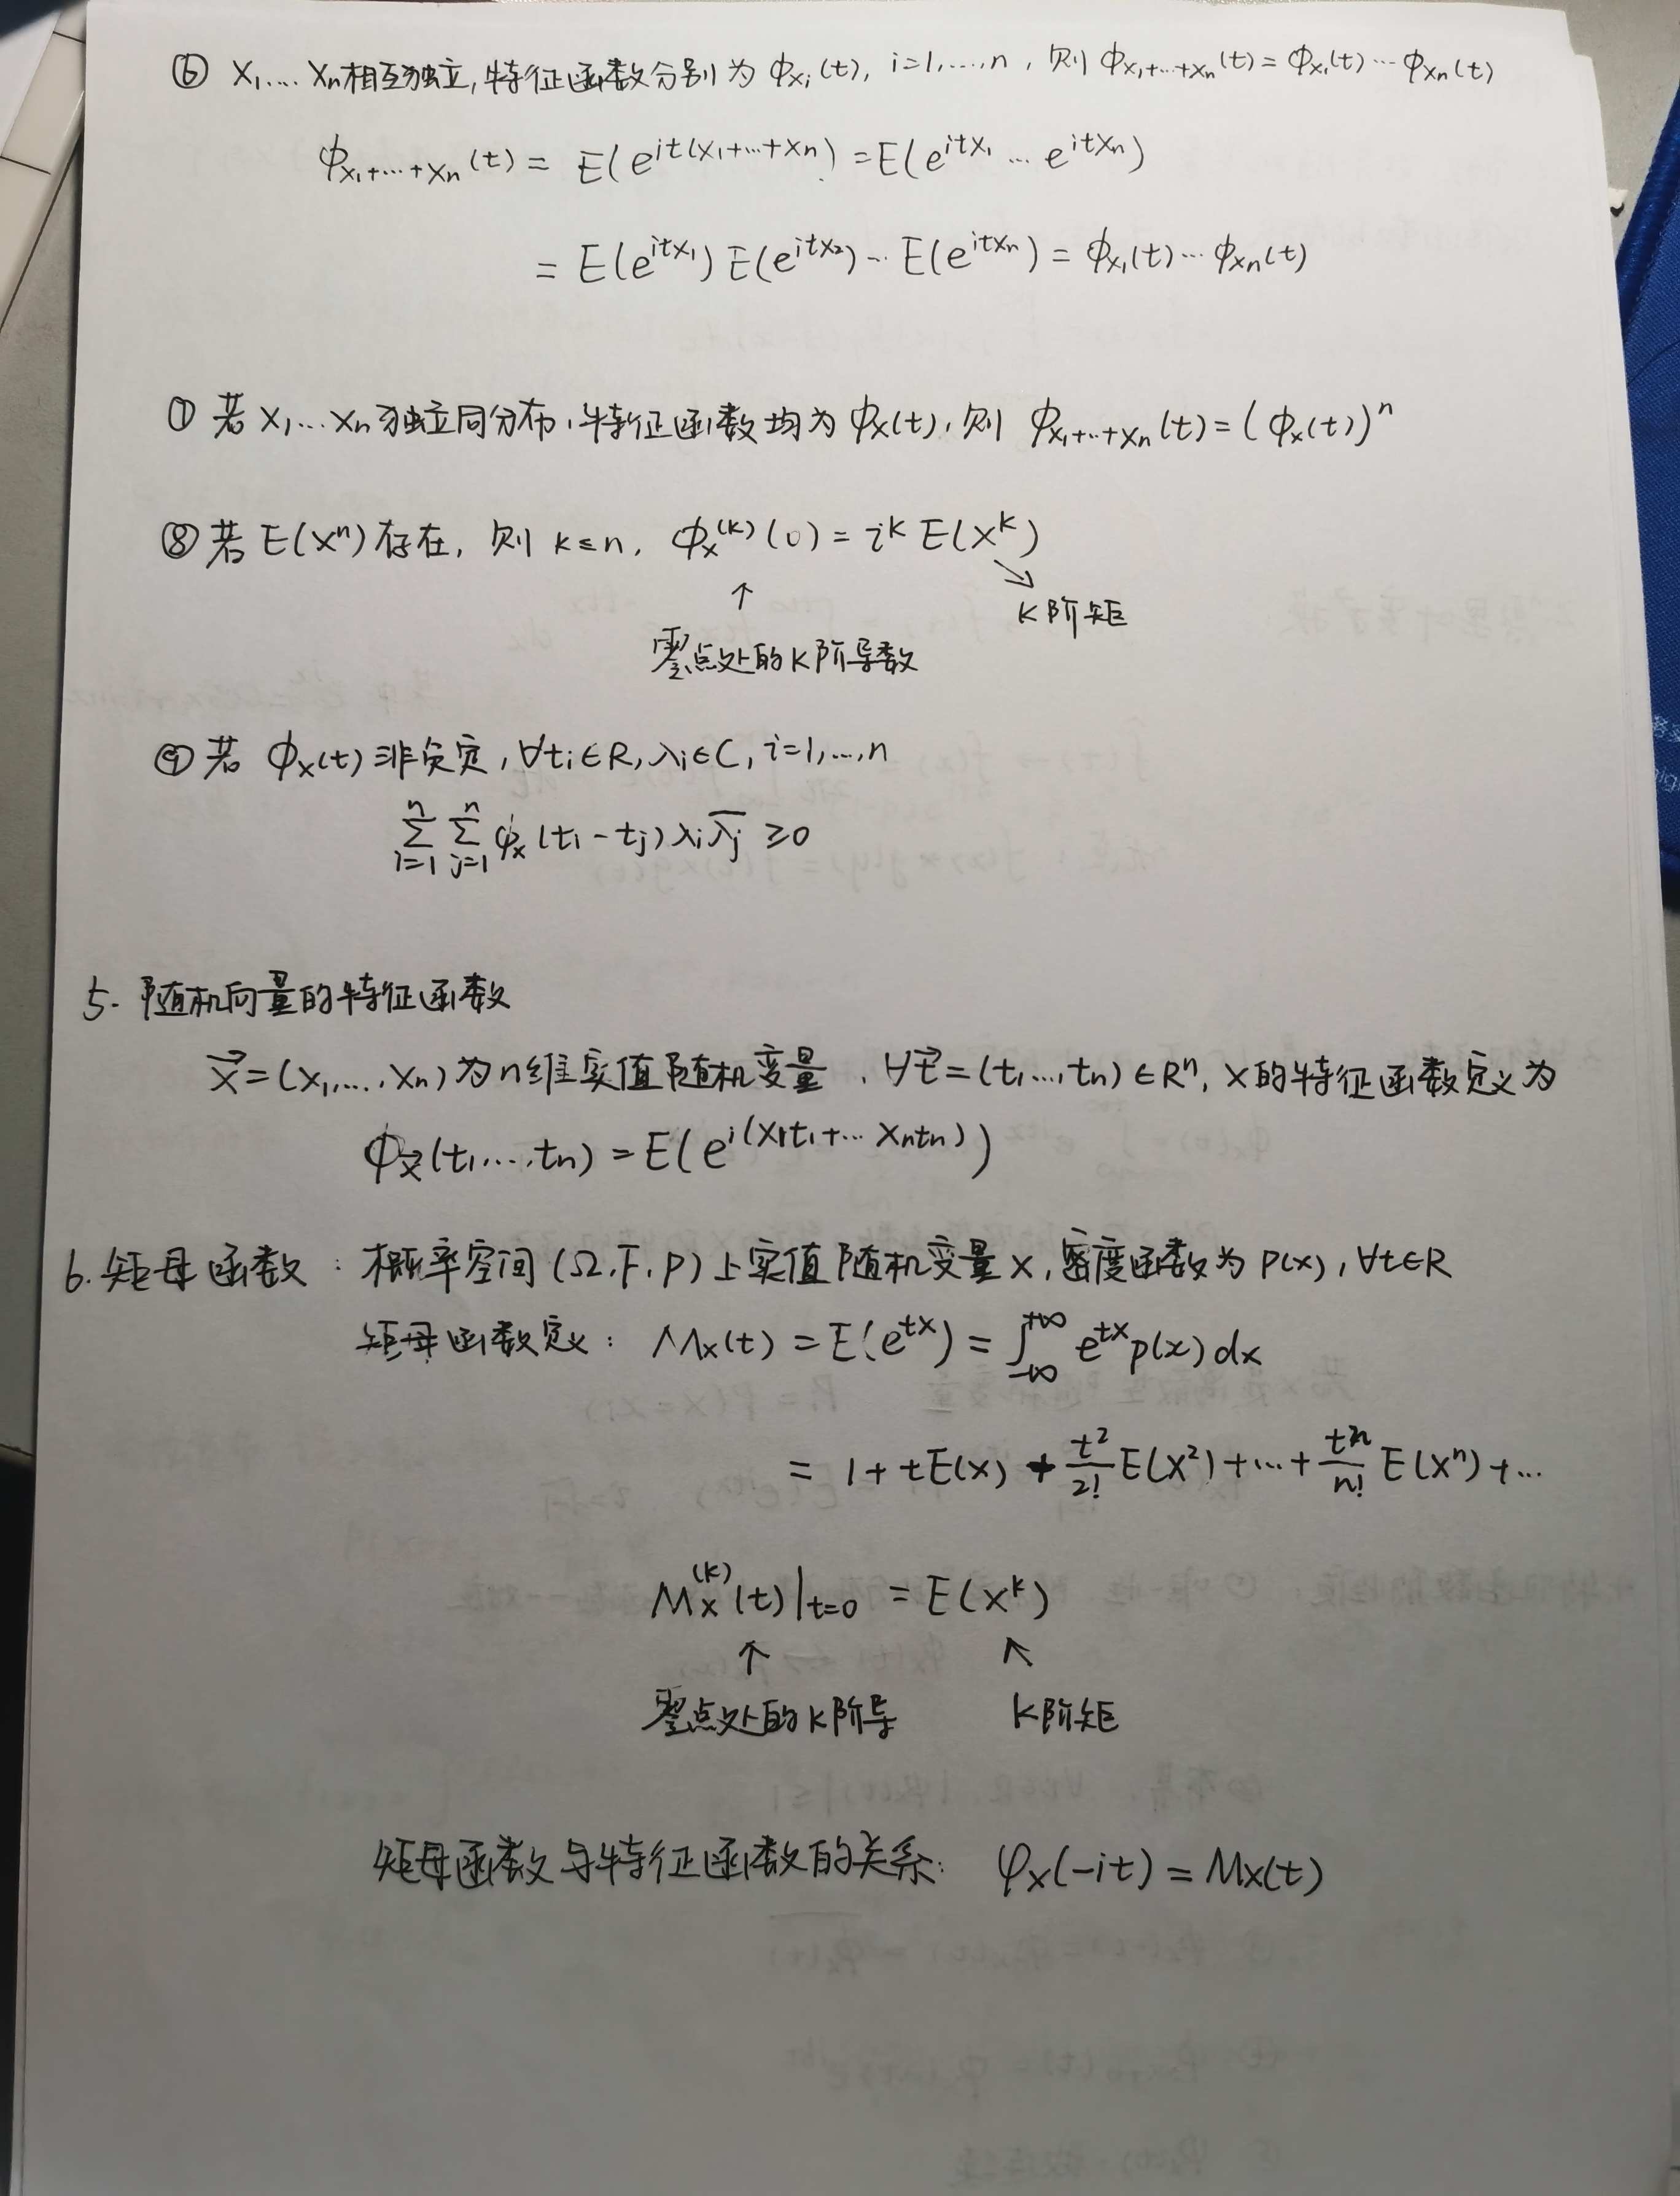 ⑥ X₁,…,Xn相互独立,特征函数分别为 ϕxᵢ(t), i=1,…,n, 则 ϕx₁+…+xn(t)=ϕx₁(t)…ϕxn(t)
ϕx₁+…+xn(t) = E(e^{it(x₁+…+xn)}) = E(e^{itx₁}…e^{itxn})
= E(e^{itx₁})E(e^{itx₂})…E(e^{itxn}) = ϕx₁(t)…ϕxn(t)
⑦ 若 X₁…Xn 独立同分布,特征函数均为 ϕx(t), 则 ϕx₁+…+xn(t) = (ϕx(t))ⁿ
⑧ 若 E(Xⁿ) 存在, 则 k≤n, ϕx^{(k)}(0) = i^k E(X^k)
↑ ↘
K阶矩
零点处的K阶导数
⑨ 若 ϕx(t) 非负定, ∀tᵢ∈R, λᵢ∈C, i=1,…,n
∑_{i=1}^{n} ∑_{j=1}^{n} ϕx(tᵢ-tⱼ) λᵢ \overline{λⱼ} ≥0
5. 随机向量的特征函数
\vec{X}=(X₁,…,Xn) 为n维实值随机变量, ∀\vec{t}=(t₁…,tn)∈Rⁿ, X的特征函数定义为
ϕ_{\vec{X}}(t₁,…,tn) = E(e^{i(X₁t₁+… Xntn)})
6. 矩母函数: 概率空间(Ω,F,P)上实值随机变量X, 密度函数为 P(x), ∀t∈R
矩母函数定义: Mx(t) = E(e^{tx}) = ∫_{-∞}^{+∞} e^{tx} p(x) dx
= 1+tE(x)+\frac{t²}{2!}E(X²)+…+\frac{tⁿ}{n!}E(Xⁿ)+…
Mx^{(k)}(t)|_{t=0} = E(X^k)
↑ ↖
零点处的K阶导 K阶矩
矩母函数与特征函数的关系: φx(-it) = Mx(t)